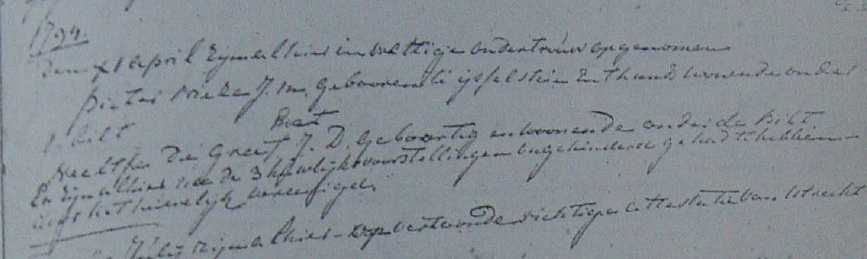 1794.
den x1 april zijn alhier in wettige ondertrouw opgenomen
Pieter J.m. Gebooren te ijsselstein En thans wonende onder
d. Bilt
Neeltje De Greef J. D. Geboortig en wonende onder de Bilt
Boert
En zijn alhier na de 3 huwlijksvoorstellingen ongehinderd gehad te hebben
in het huwelijk bevestigd
Julij zijn alhier op vertoonde richtige attestatie van Utrecht